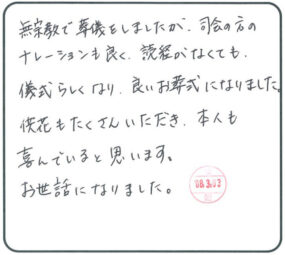 無宗教で葬儀をしましたが、司会の方の
ナレーションも良く、読経がなくても、
儀式らしくなり、良いお葬式になりました。
供花もたくさんいただき、本人も
喜んでいると思います。
お世話になりました。
'08.3.03